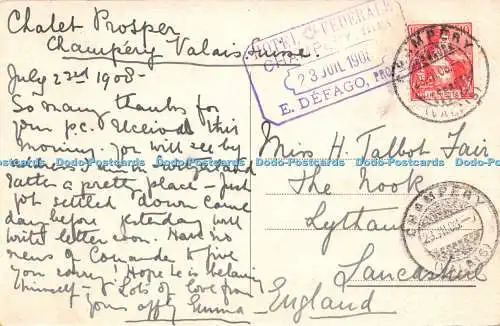 Chalet Prosper
Champéry Valais Suisse.
July 22nd 1908-
So many thanks for
your p.c. Received this
morning. You will see by
address am in
a pretty place - just
got settled down came
day before yesterday will
write letter soon. Have no
news of to give
you sorry! Hope he is behaving
himself - Lots of love from
yours affly Emma
HOTEL & FEDERALE
CHAMPERY
23 JUIL 1908
E. DÉFAGO, PROP
CHAMPERY
(VALAIS)
Miss H. Talbot Fair
The Nook
Lytham
Lancashire
England
CHAMPERY
23.VII.08.-7
Dodo-Postcards Dodo-Postcards Dodo-Postcards Dodo-Postcards Dodo-Postcards